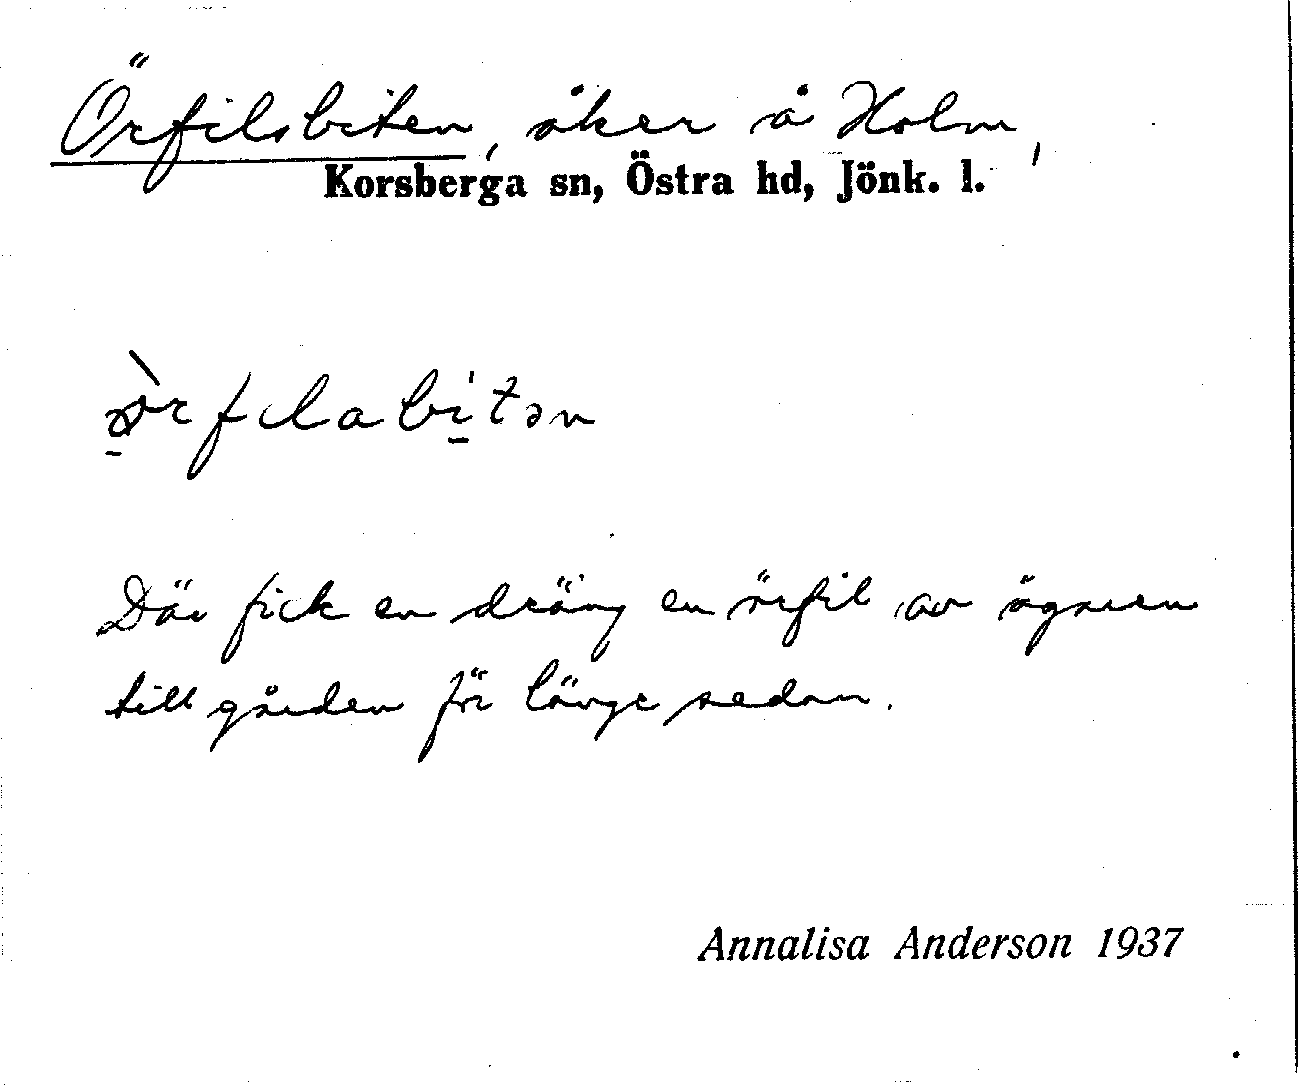 Örfilsbiten, åker å Holm,
Korsberga sn, Östra hd, Jönk. l.
ö̀rfilabitən
Där fick en dräng en örfil av ägaren
till gården för länge sedan.
Annalisa Anderson 1937